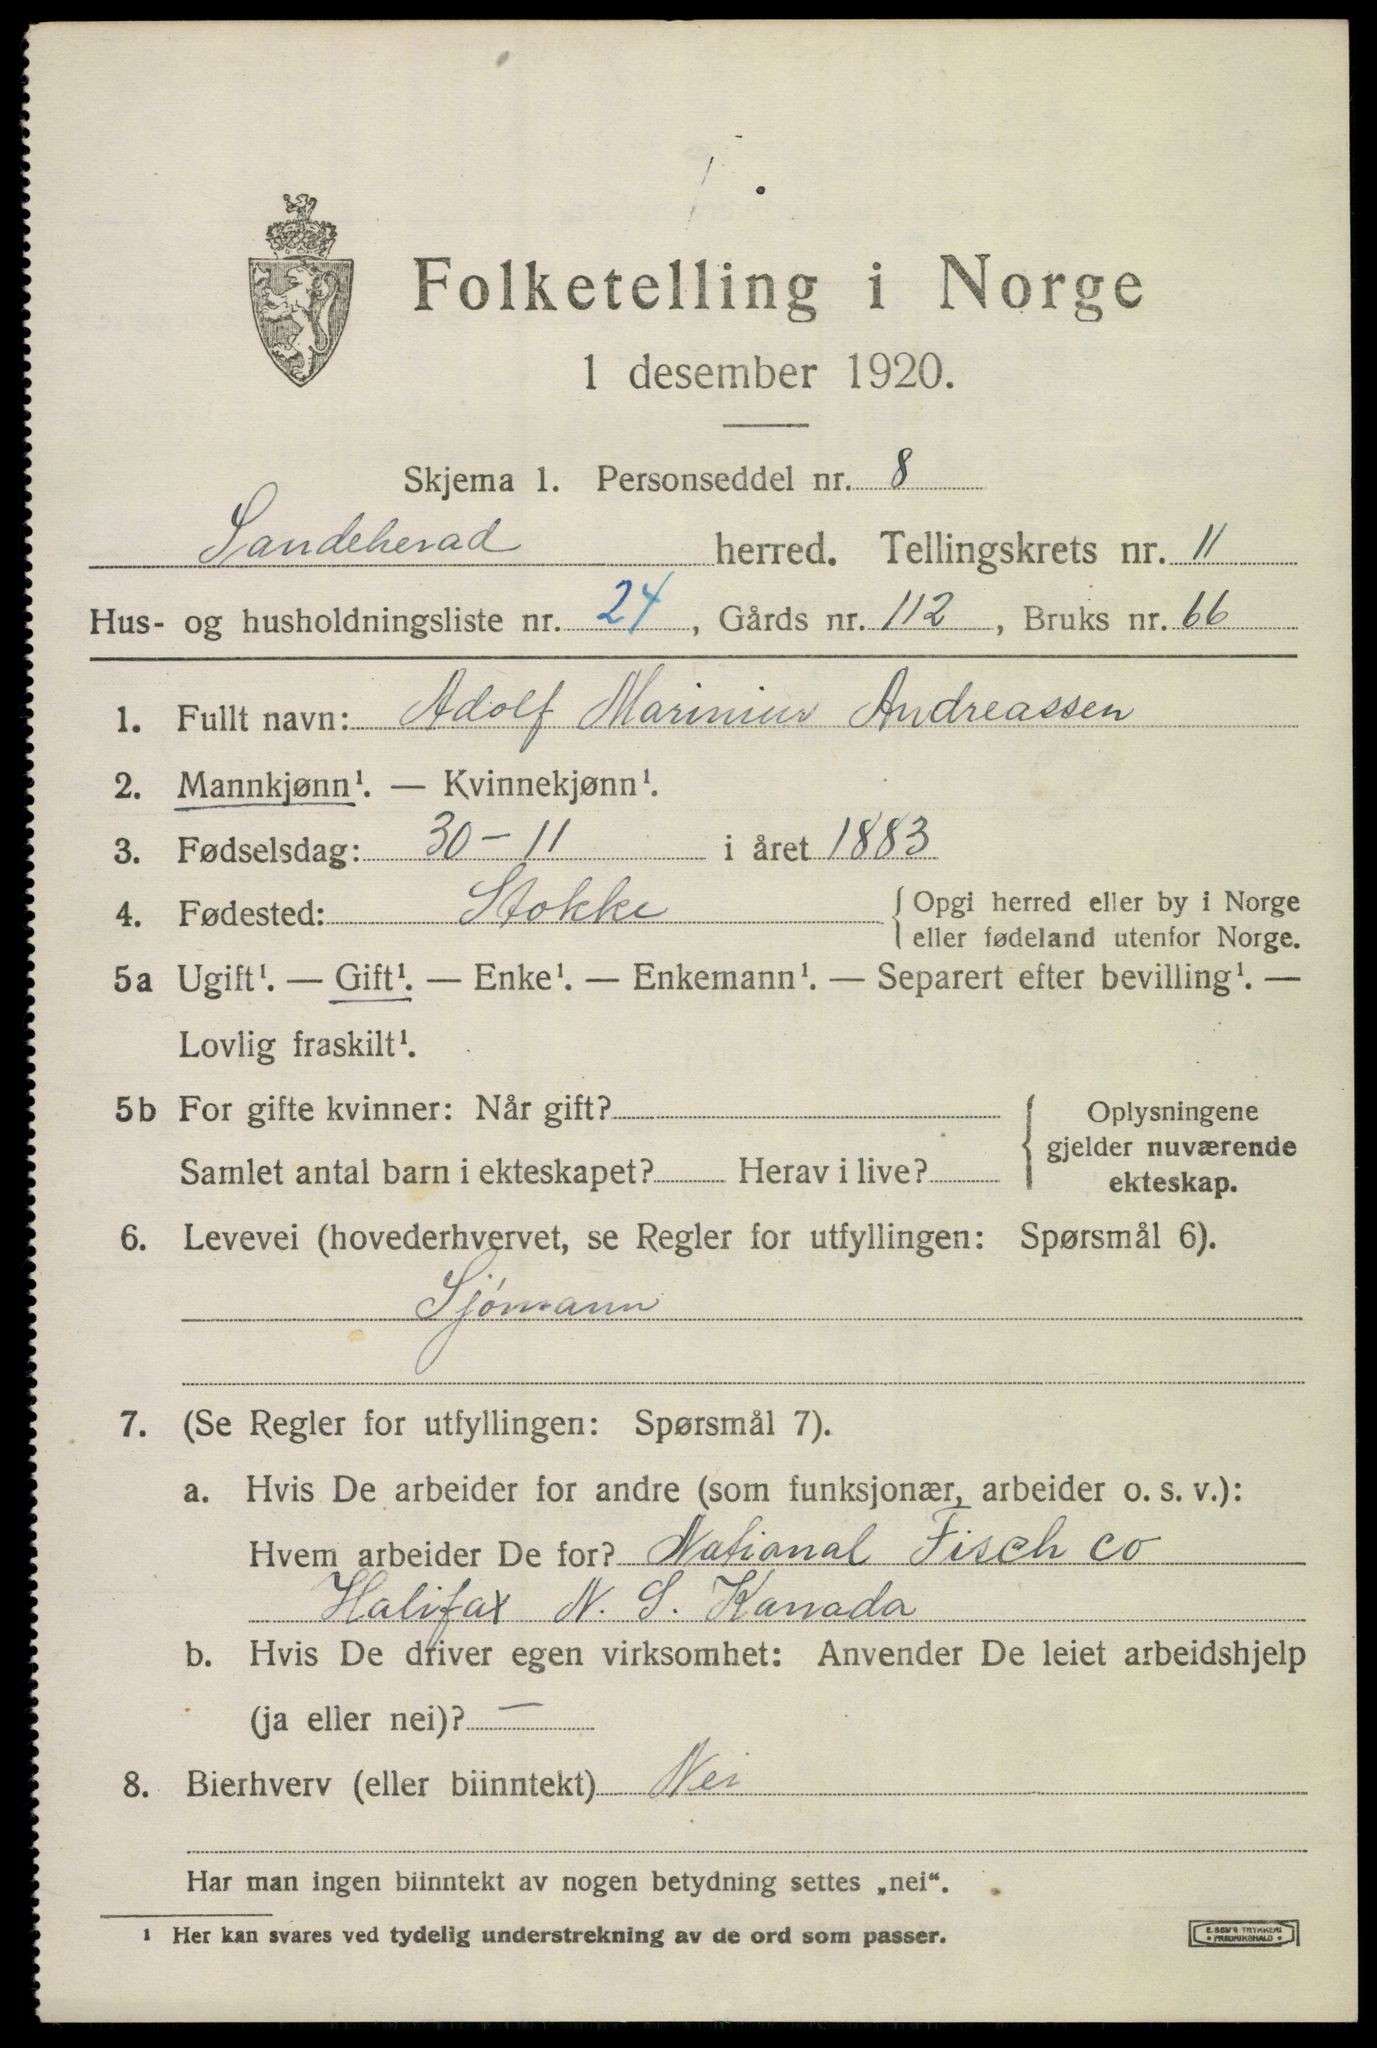 Folketelling i Norge
1 desember 1920.
Skjema 1. Personseddel nr. 8
Sandeherad herred. Tellingskrets nr. 11
Hus- og husholdningsliste nr. 24, Gårds nr. 112, Bruks nr. 66
1. Fullt navn: Adolf Marinius Andreassen
2. Mannkjønn¹. — Kvinnekjønn¹.
3. Fødselsdag: 30-11 i året 1883
4. Fødested: Stokke { Opgi herred eller by i Norge
eller fødeland utenfor Norge.
5a Ugift¹. — Gift¹. — Enke¹. — Enkemann¹. — Separert efter bevilling¹. —
Lovlig fraskilt¹.
5b For gifte kvinner: Når gift? { Oplysningene
gjelder nuværende
Samlet antal barn i ekteskapet? Herav i live?
ekteskap.
6. Levevei (hovederhvervet, se Regler for utfyllingen: Spørsmål 6).
Sjømann
7. (Se Regler for utfyllingen: Spørsmål 7).
a. Hvis De arbeider for andre (som funksjonær, arbeider o. s. v.):
Hvem arbeider De for? National Fisch co
Halifax N. S. Kanada
b. Hvis De driver egen virksomhet: Anvender De leiet arbeidshjelp
(ja eller nei)? —
8. Bierhverv (eller biinntekt) Nei
Har man ingen biinntekt av nogen betydning settes „nei“.
¹ Her kan svares ved tydelig understrekning av de ord som passer.
E. SEM'S TRYKKERI
• FREDRIKSHALD •